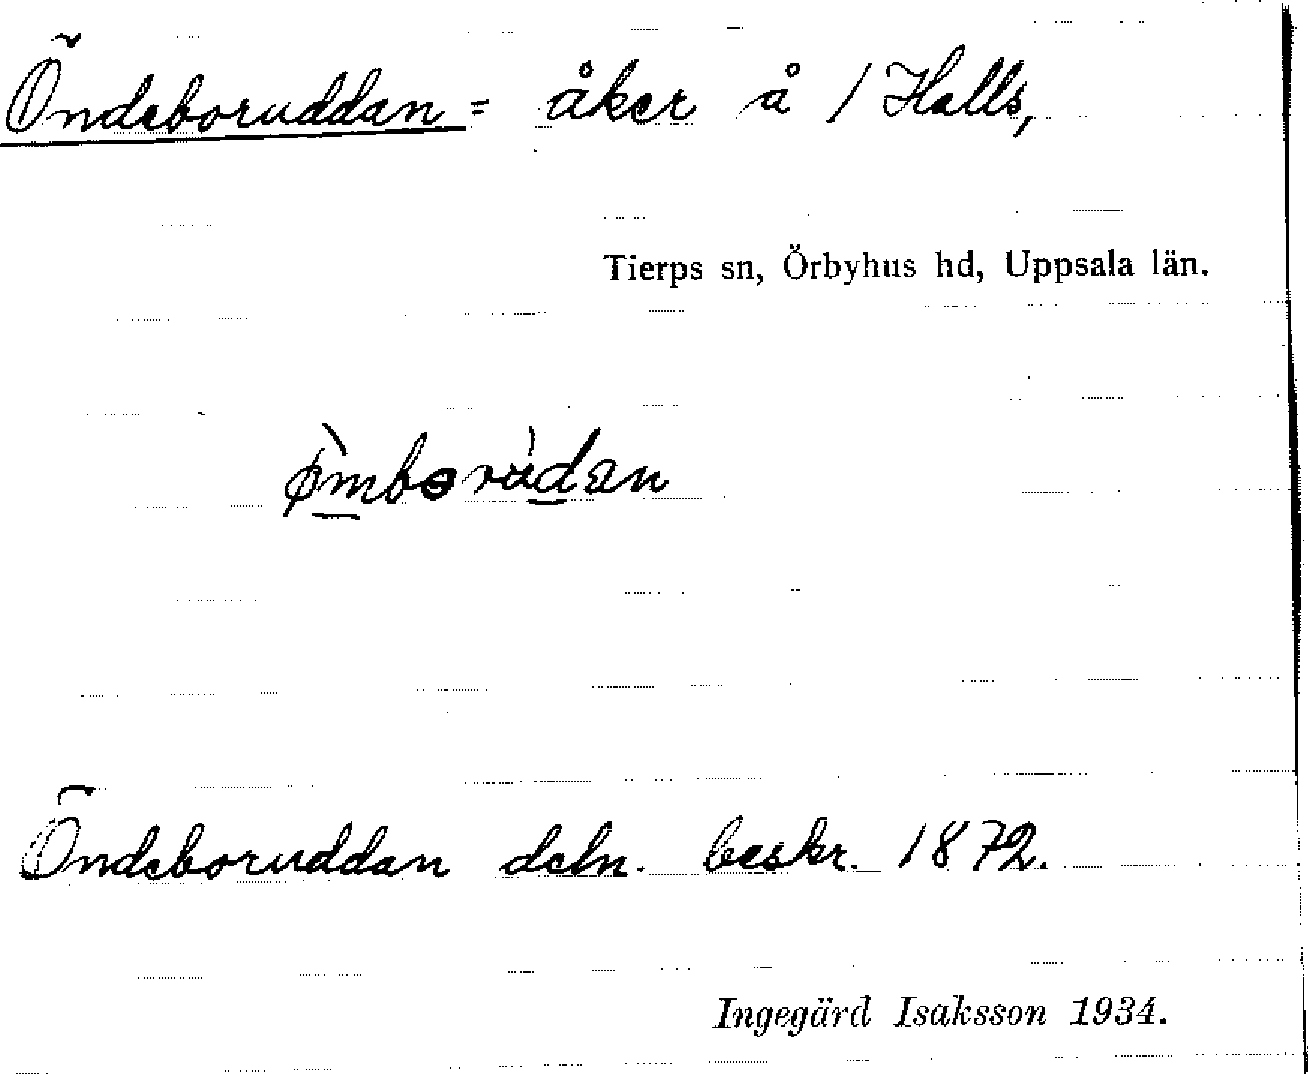 Öndeboruddan = åker å 1 Halls,
Tierps sn, Örbyhus hd, Uppsala län.
ø̀mbɵrúdan
Öndeboruddan deln. beskr. 1872.
Ingegärd Isaksson 1934.